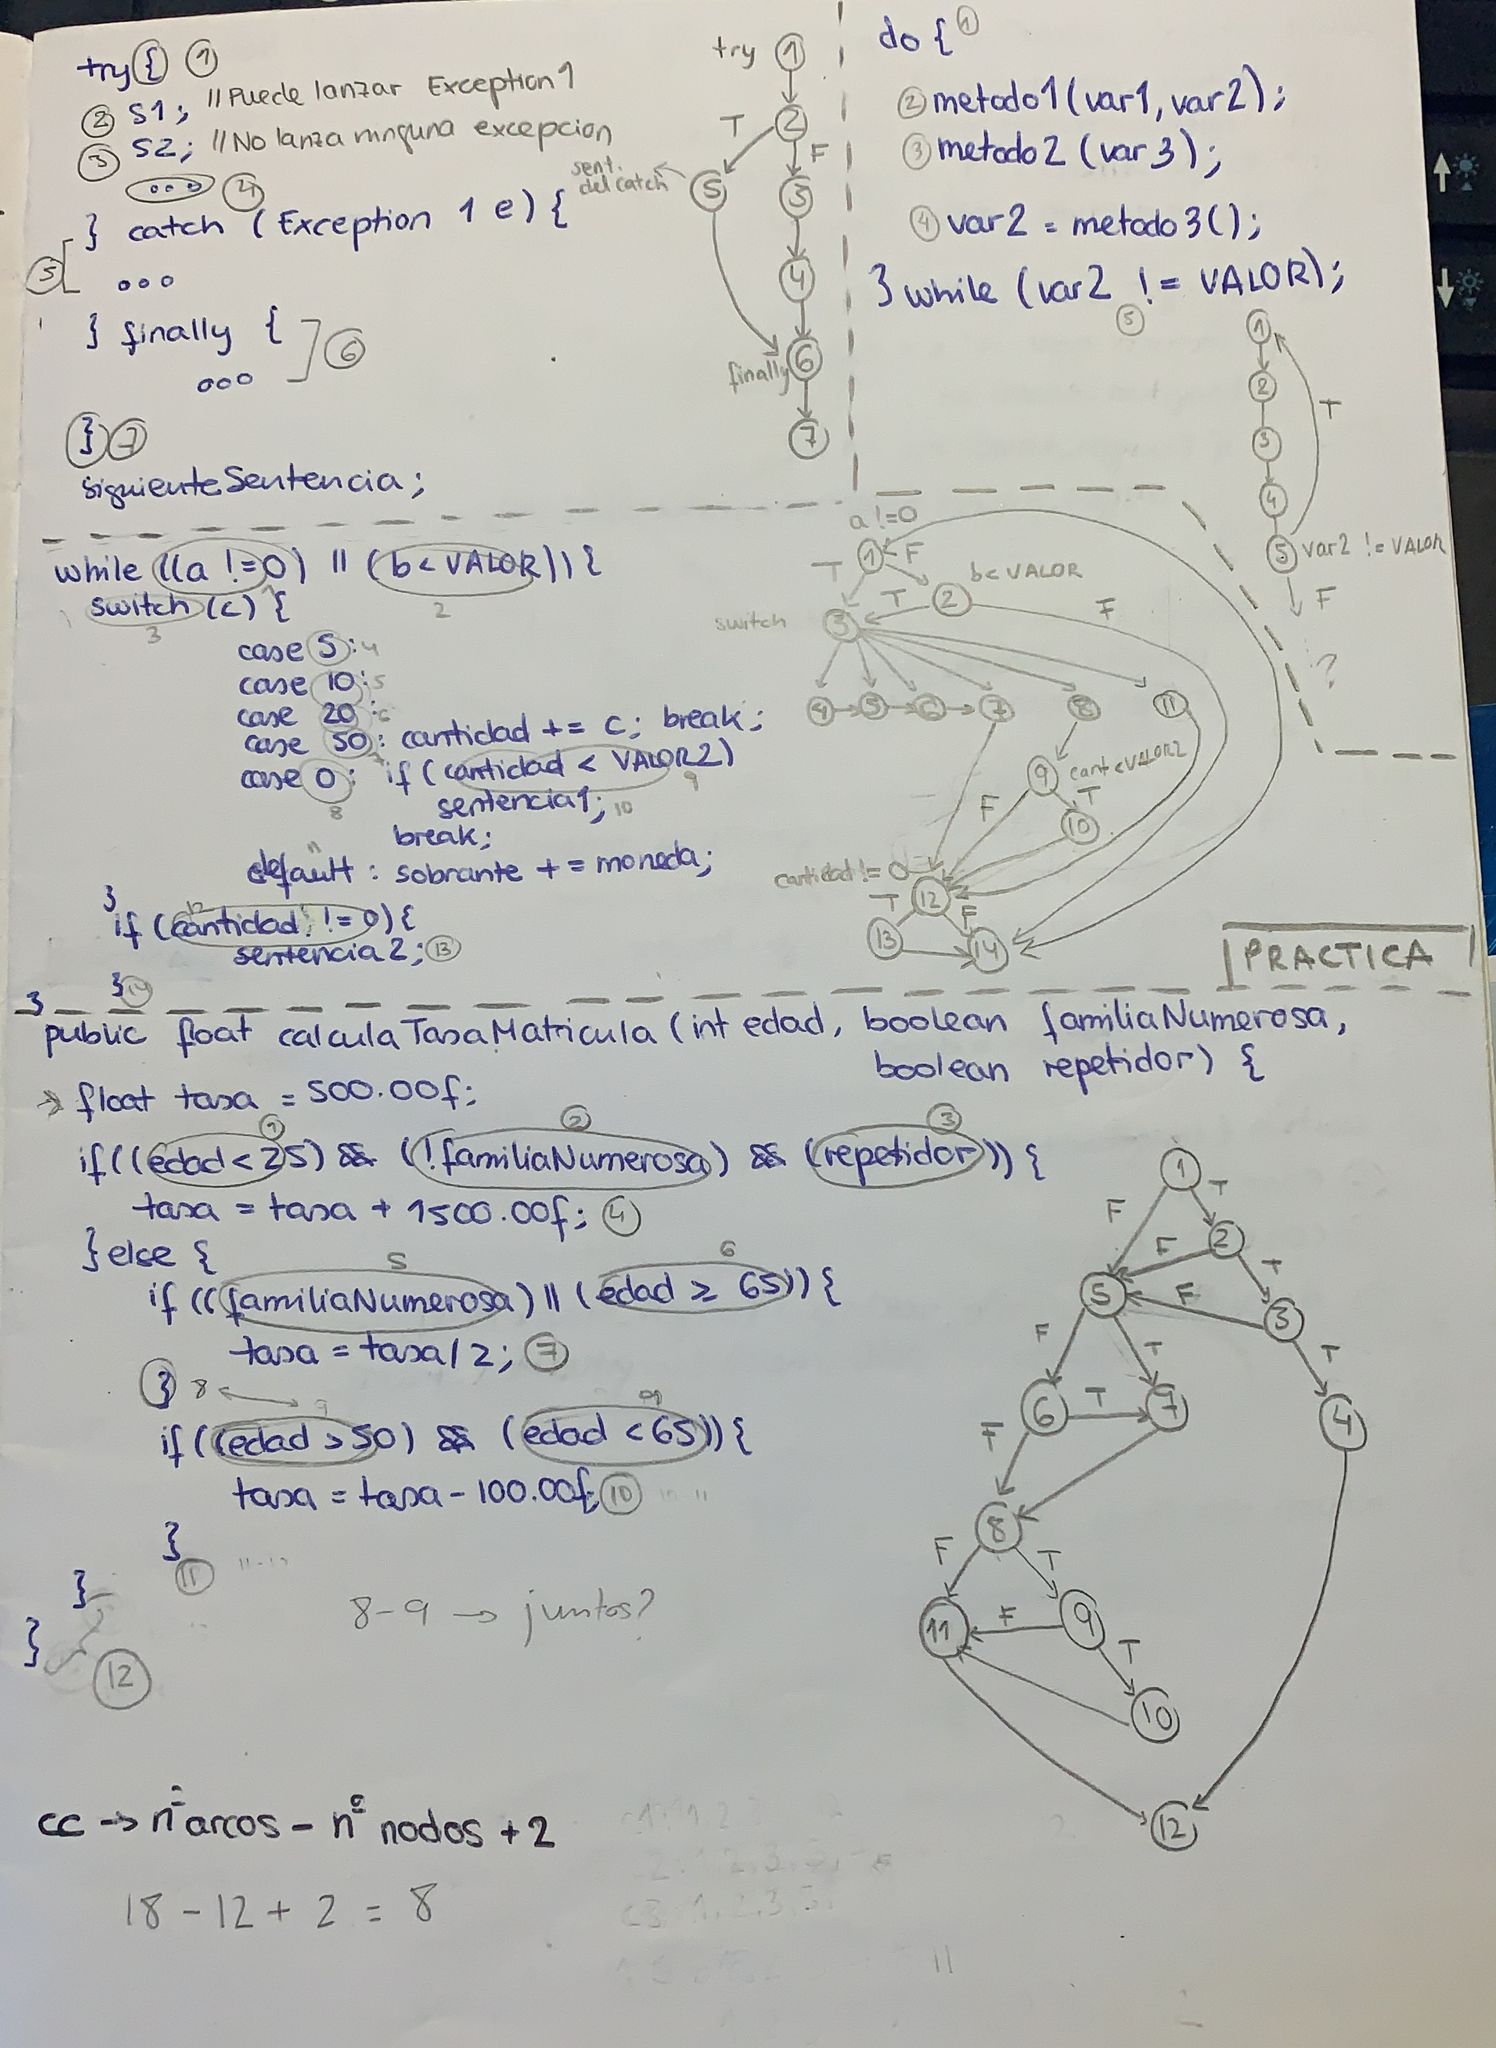 try { 1
2 S1; // Puede lanzar Exception 1
3 S2; // No lanza ninguna excepcion
... 4
} catch (Exception 1 e) {
5 ...
} finally {
... 6
} 7
siguienteSentencia;
try 1
T 2 F
sent. del catch 5 3
4
finally 6
7
do { 1
2 metodo1 (var1, var2);
3 metodo2 (var3);
4 var2 = metodo3();
} while (var2 != VALOR);
5
1
2
T
3
4
5 var2 != VALOR
F
?
while ((a != 0) || (b < VALOR)) {
1 2
switch (c) {
3
case 5: 4
case 10: 5
case 20: 6
case 50: cantidad += c; break;
7
case 0: if (cantidad < VALOR2)
8 9
sentencia1; 10
break;
11
default: sobrante += moneda;
}
12
if (cantidad != 0) {
sentencia2; 13
} 14
}
a != 0
T 1 F
b < VALOR
T 2 F
switch 3
4 5 6 7 8 11
9 cant < VALOR2
F T
10
cantidad != 0
T 12 F
13 14
PRACTICA
public float calculaTasaMatricula (int edad, boolean familiaNumerosa,
boolean repetidor) {
→ float tasa = 500.00f;
1 2 3
if ((edad < 25) && (!familiaNumerosa) && (repetidor)) {
tasa = tasa + 1500.00f; 4
} else {
5 6
if ((familiaNumerosa) || (edad ≥ 65)) {
tasa = tasa / 2; 7
} 8
9
if ((edad > 50) && (edad < 65)) {
tasa = tasa - 100.00f; 10
}
11
}
}
12
8-9 → juntos?
1
F T
F 2
T
5 F 3
F T T
6 T 7 4
F
8
F T
11 F 9
T
10
12
CC → nº arcos - nº nodos + 2
18 - 12 + 2 = 8